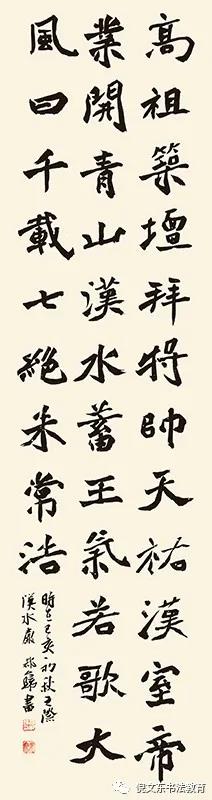 高祖築壇拜將帥天祐漢室帝
業開青山漢水蓄王氣若歌大
風曰千載七絕米常浩
時在己亥初秋之際
漢水 書
倪文东书法教育